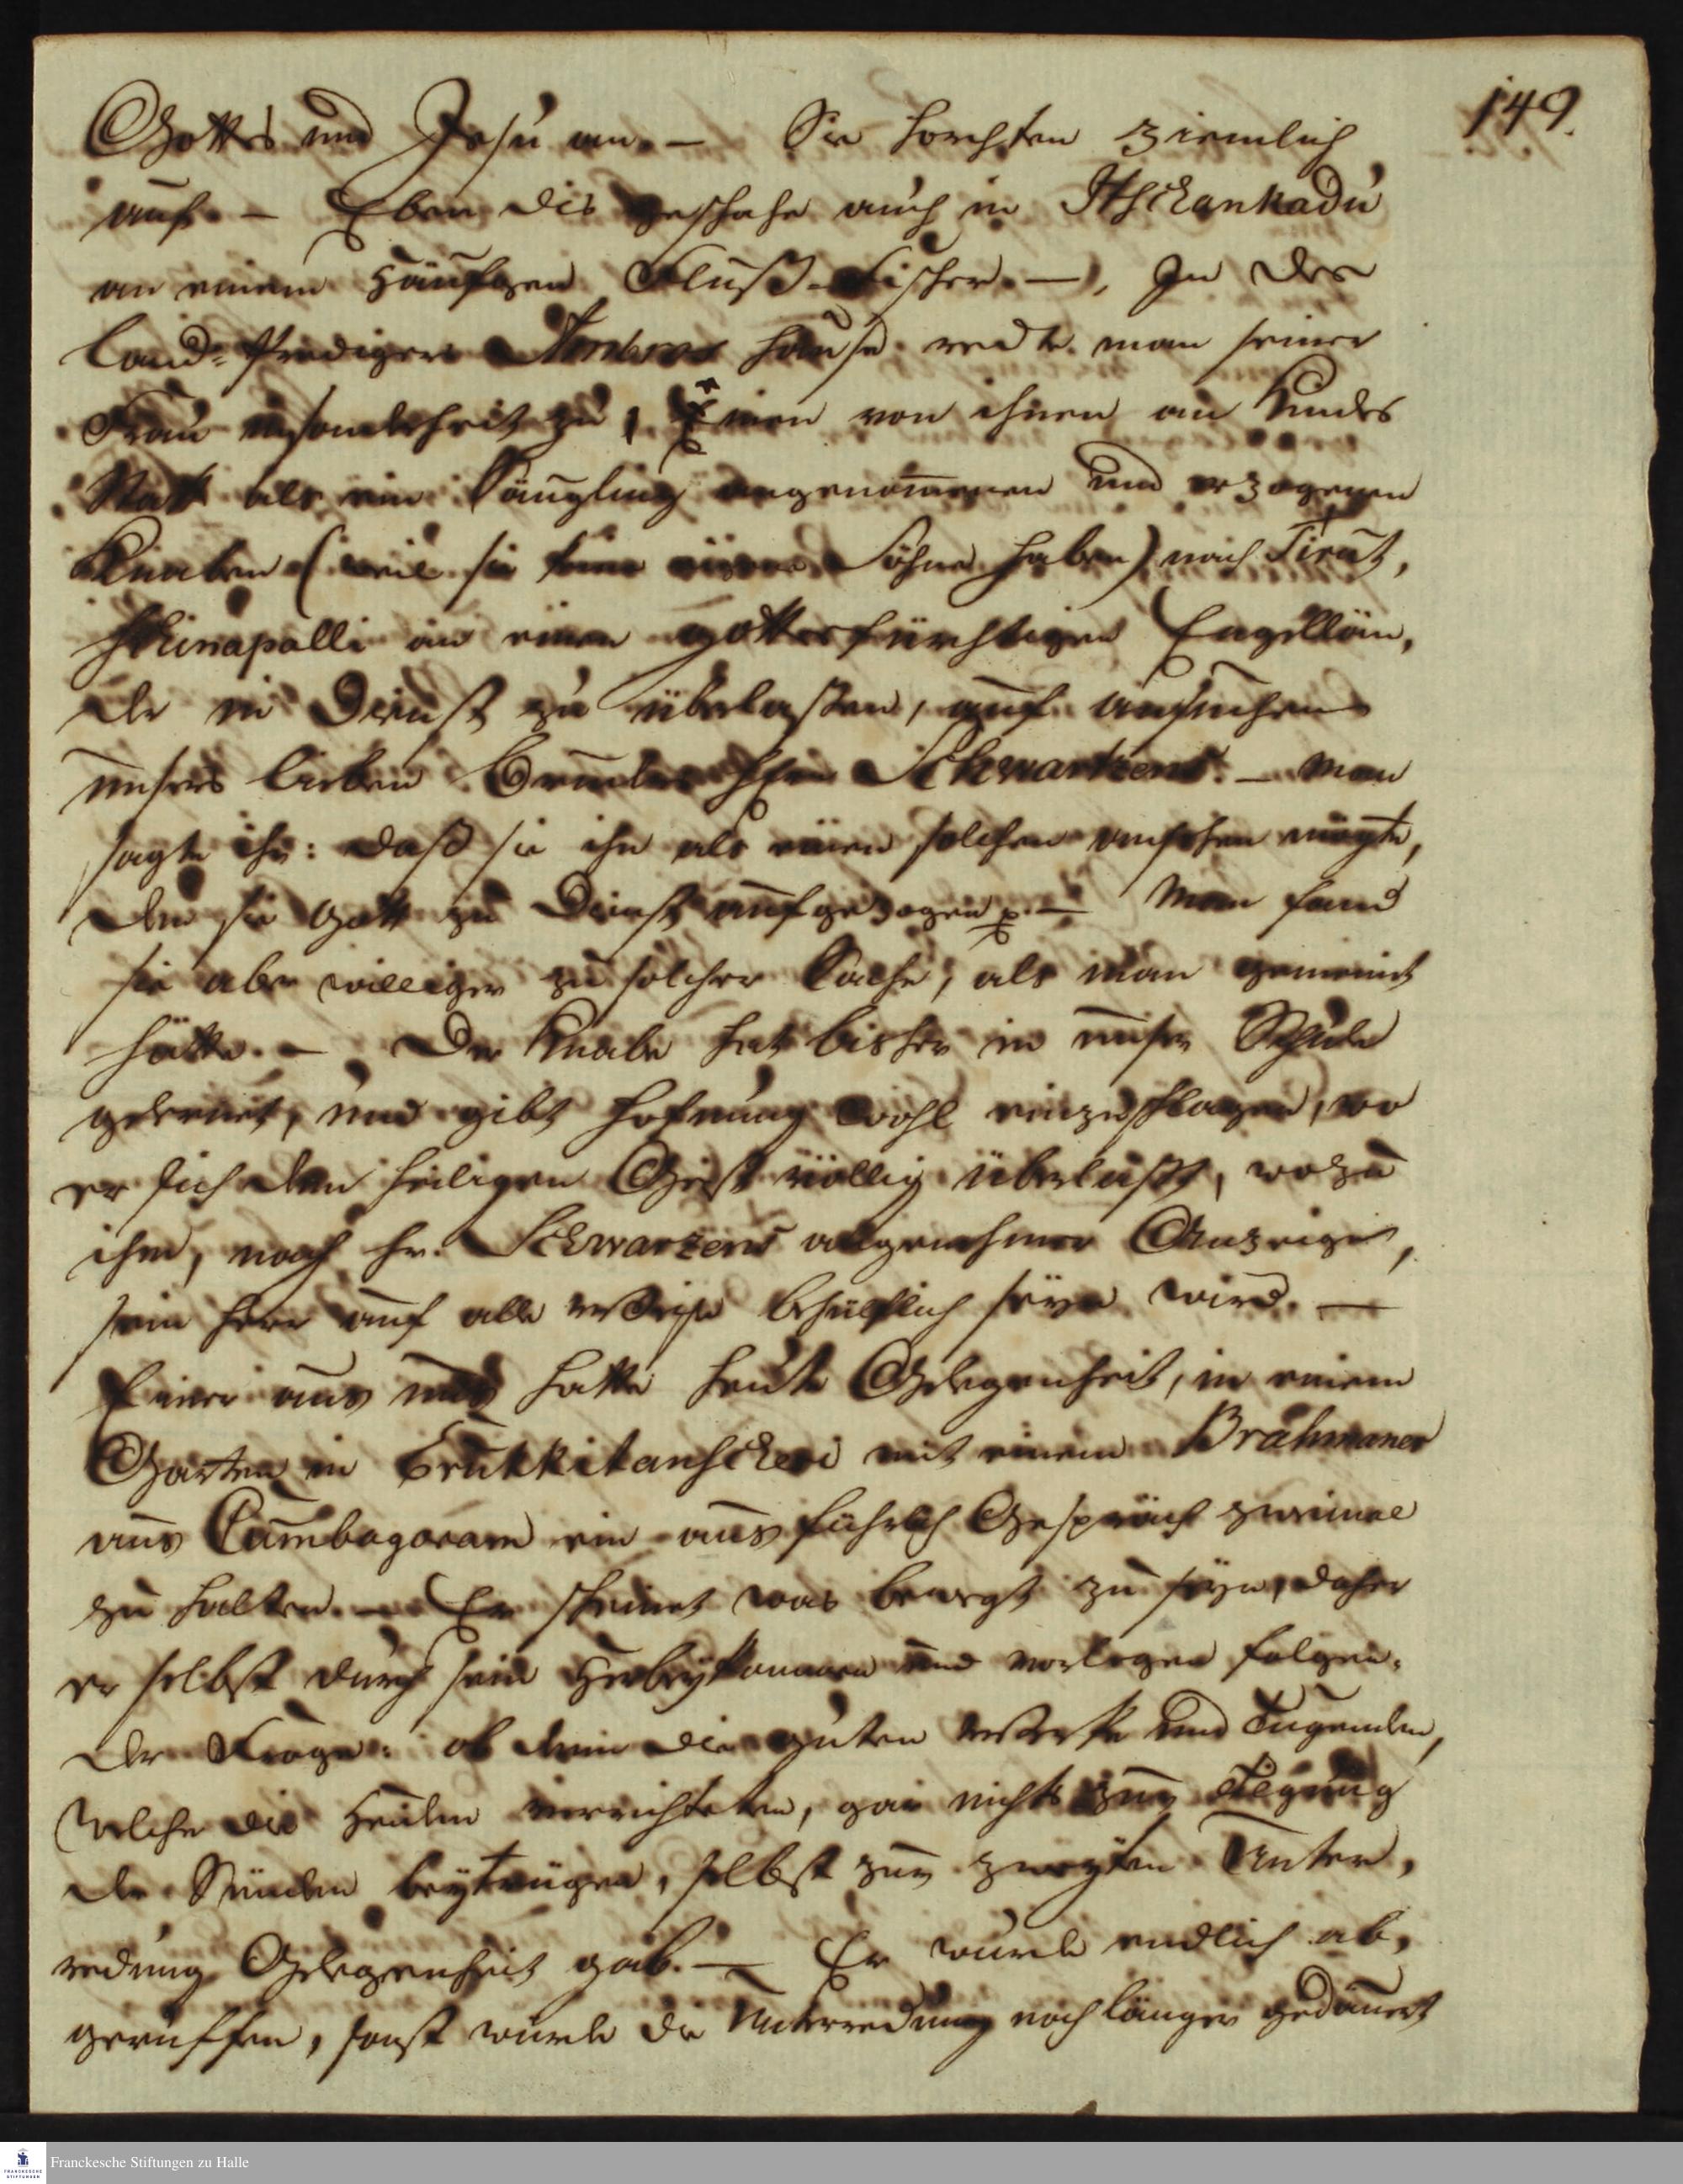 149.
Gottes und Jesu an. – Sie horchten ziemlich
auf. – Eben dis geschahe auch in Itschankadu
an einem Häufgen Fluß-Fischer. –, In des
Land-Predigers Ambros Hause redte man seiner
Frau insonderheit zu, Einen von ihnen an Kindes
Statt als ein Säugling angenom̅enen und erzogenen
Knaben (weil sie keine eigene Söhne haben) nach Tirut,
schinapalli an einen gottesfürchtigen Engellän,
der in Dienst zu überlaßen, auf ansuchen
unsers lieben Bruders Hrn Schwartzens. – Man
sagte ihr: daß sie ihn als einen solchen ansehen mögte,
den sie Gott zu Dienst aufgezogen p. – Man fand
sie aber williger zu solcher Sache, als man gemeint
hätte. – Der Knabe hat bisher in unsrer Schule
gelernet, und gibt Hofnung wohl einzuschlagen, wo
er sich dem heiligen Geist völlig überläßt, wozu
ihm, nach Hr. Schwartzens angenehmer Anzeige,
sein Herr auf alle Weise behülflich seyn wird. –
Einer aus uns hatte heute Gelegenheit, in einem
Garten in Erukkitanscheri mit einem Brahmaner
aus Cumbagonam ein ausführlich Gespräch zweimal
zu halten. – Er scheinet was bewegt zu seyn, daher
er selbst durch sein Herbeykommen und vorlegen folgen,
der Frage: ob denn die guten Werke und Tugenden,
welche die Heiden verrichteten, gar nichts zur Tilgung
der Sünden beytrügen, selbst zur zweyten Unter,
redung Gelegenheit gab. – Er wurde endlich ab,
geruffen, sonst würde die Unterredung noch länger gedauert
Franckesche Stiftungen zu Halle